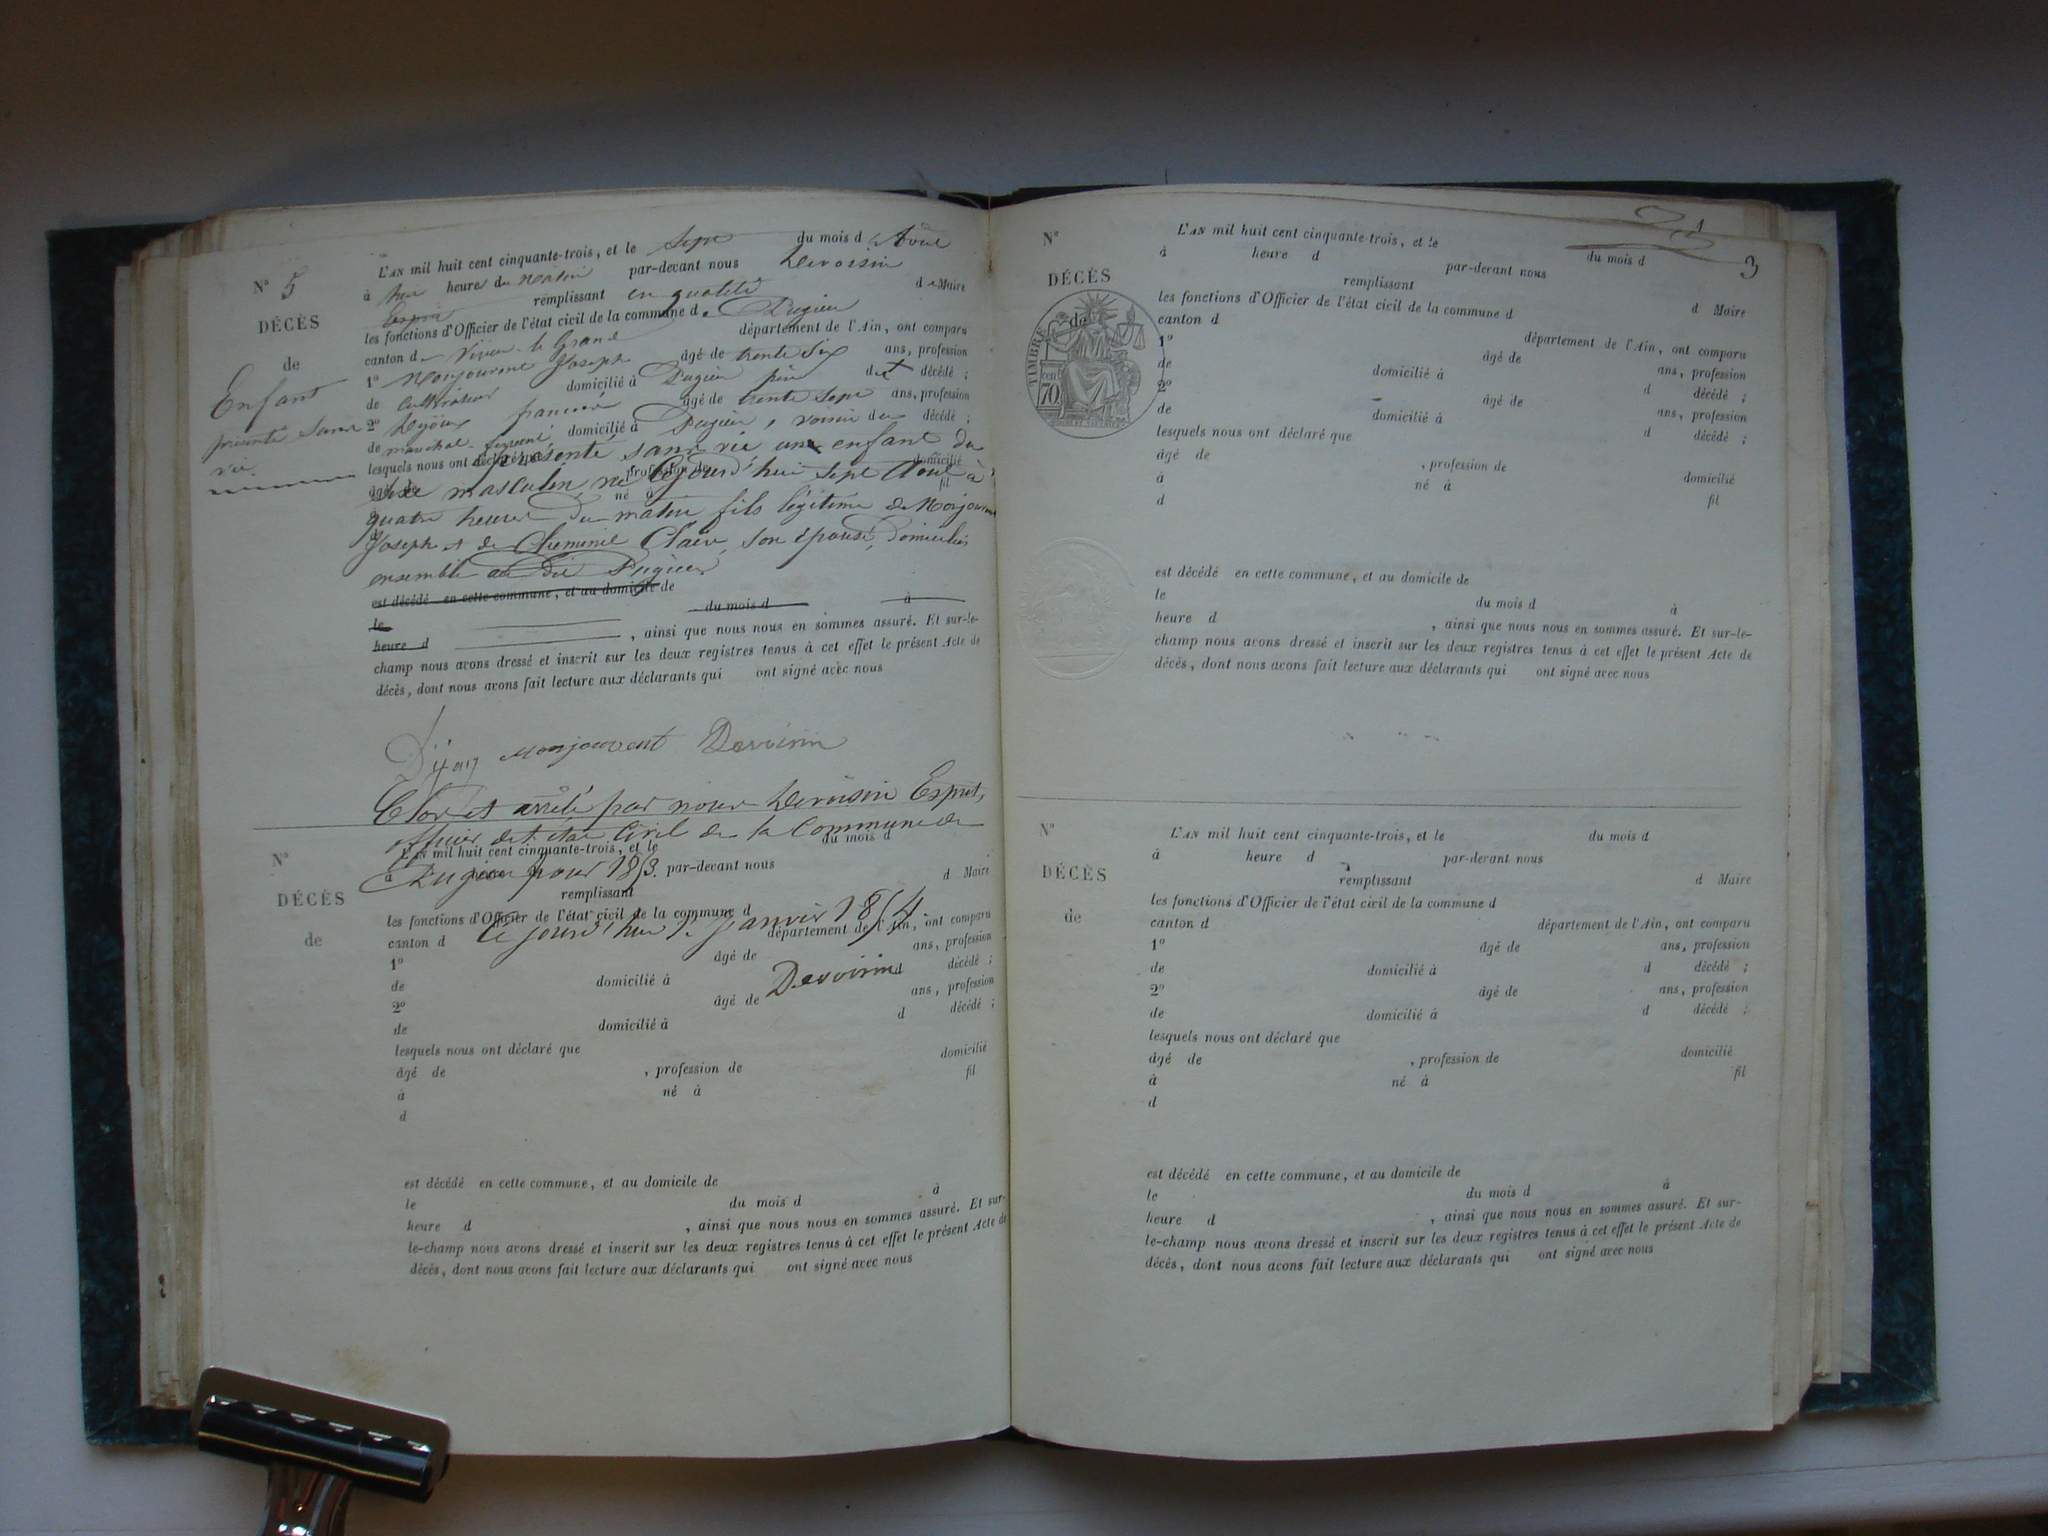 N° 5
DÉCÈS
de
Enfant
présenté sans
vie.
L'AN mil huit cent cinquante-trois, et le sept du mois d'Août
à heure du matin par-devant nous Devoisin
Esprit remplissant en qualité de Maire
les fonctions d'Officier de l'état civil de la commune de Pugieu
canton de Virieu le Grand département de l'Ain, ont comparu
1° Monjouvent Joseph âgé de trente six ans, profession
de Cultivateur domicilié à Pugieu père du décédé ;
2° françois âgé de trente sept ans, profession
de domicilié à Pugieu, voisin du décédé ;
lesquels nous ont déclaré que présenté sans vie un enfant du
sexe masculin, né Cejourd'hui sept Août à
quatre heures du matin fils légitime de Monjouvent
Joseph et de Claire, son épouse, domiciliés
ensemble au dit Pugieu
est décédé en cette commune, et au domicile de
le du mois d à
heure d , ainsi que nous nous en sommes assuré. Et sur-le-
champ nous avons dressé et inscrit sur les deux registres tenus à cet effet le présent Acte de
décès, dont nous avons fait lecture aux déclarants qui ont signé avec nous
Monjouvent Devoisin
Clos et arrêté par nous Devoisin Esprit,
officier de l'état Civil de la Commune de
Pugieu pour 1853.
ce jourd'hui 1er janvier 1854.
Devoisin
N°
DÉCÈS
de
L'AN mil huit cent cinquante-trois, et le du mois d
à heure d par-devant nous
remplissant d Maire
les fonctions d'Officier de l'état civil de la commune d
canton d département de l'Ain, ont comparu
1° âgé de ans, profession
de domicilié à d décédé ;
2° âgé de ans, profession
de domicilié à d décédé ;
lesquels nous ont déclaré que
âgé de , profession de domicilié
à né à fil
d
est décédé en cette commune, et au domicile de
le du mois d à
heure d , ainsi que nous nous en sommes assuré. Et sur-
le-champ nous avons dressé et inscrit sur les deux registres tenus à cet effet le présent Acte de
décès, dont nous avons fait lecture aux déclarants qui ont signé avec nous
3
N°
DÉCÈS
de
TIMBRE
70
L'AN mil huit cent cinquante-trois, et le du mois d
à heure d par-devant nous
remplissant d Maire
les fonctions d'Officier de l'état civil de la commune d
canton d département de l'Ain, ont comparu
1° âgé de ans, profession
de domicilié à d décédé ;
2° âgé de ans, profession
de domicilié à d décédé ;
lesquels nous ont déclaré que
âgé de , profession de domicilié
à né à fil
d
est décédé en cette commune, et au domicile de
le du mois d à
heure d , ainsi que nous nous en sommes assuré. Et sur-le-
champ nous avons dressé et inscrit sur les deux registres tenus à cet effet le présent Acte de
décès, dont nous avons fait lecture aux déclarants qui ont signé avec nous
N°
DÉCÈS
de
L'AN mil huit cent cinquante-trois, et le du mois d
à heure d par-devant nous
remplissant d Maire
les fonctions d'Officier de l'état civil de la commune d
canton d département de l'Ain, ont comparu
1° âgé de ans, profession
de domicilié à d décédé ;
2° âgé de ans, profession
de domicilié à d décédé ;
lesquels nous ont déclaré que
âgé de , profession de domicilié
à né à fil
d
est décédé en cette commune, et au domicile de
le du mois d à
heure d , ainsi que nous nous en sommes assuré. Et sur-
le-champ nous avons dressé et inscrit sur les deux registres tenus à cet effet le présent Acte de
décès, dont nous avons fait lecture aux déclarants qui ont signé avec nous